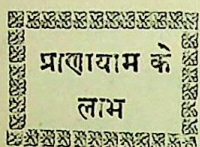 प्राणायाम के
लाभ